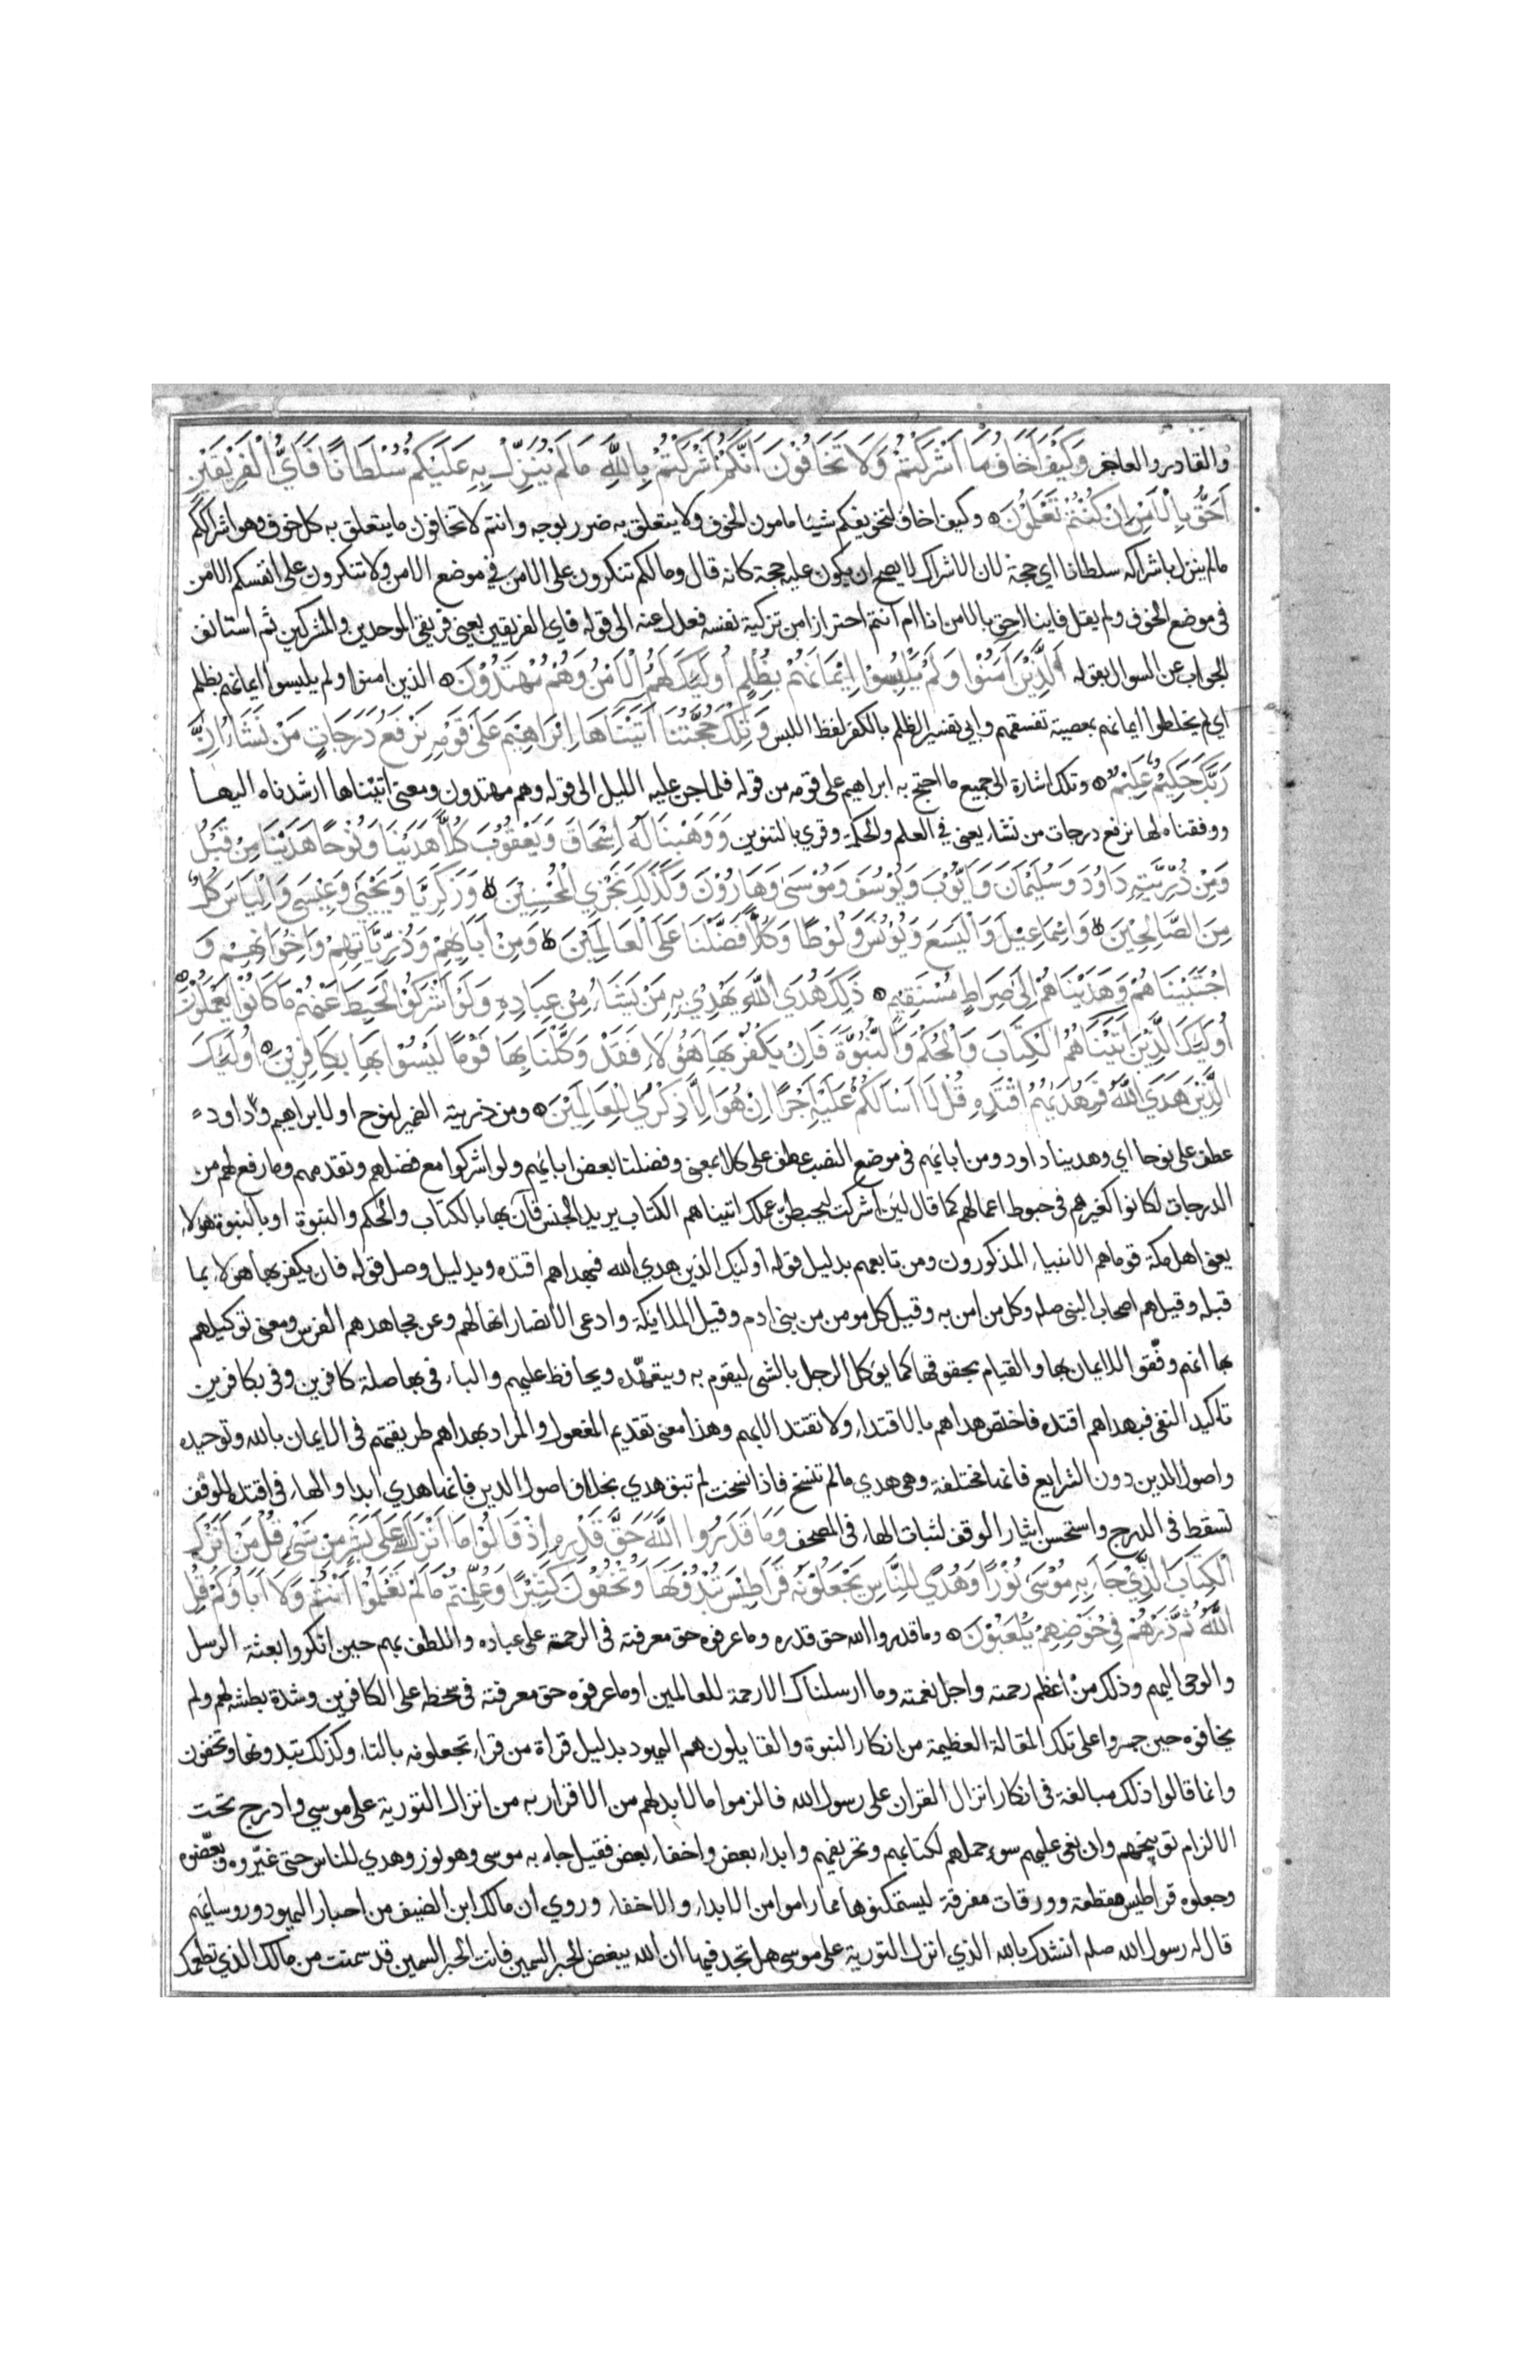 والقادر والعاجز وَكَيْفَ أَخَافُ مَا أَشْرَكْتُمْ وَلَا تَخَافُوْنَ أَنَّكُمْ أَشْرَكْتُمْ بِاللَّهِ مَا لَمْ يُنَزِّلْ بِهِ عَلَيْكُمْ سُلْطَانًا فَأَيُّ الْفَرِيْقَيْنِ
أَحَقُّ بِالْأَمْنِ إِنْ كُنْتُمْ تَعْلَمُوْنَ وكيف اخاف لتخويفكم شيئا مامون الخوف ولا يتعلق به ضرر بوجه وانتم لا تخافون ما يتعلق به كل خوف وهو اشراككم
مالم ينزل باشراكه سلطانا اي حجة لان الاشراك لا يصح ان يكون عليه حجة كانه قال وما لكم تنكرون على الامن في موضع الامن ولا تنكرون على انفسكم الامن
في موضع الخوف ولم يقل فاينا احق بالامن انا ام انتم احترازا من تزكية نفسه فعدل عنه الى قوله فاي الفريقين يعني فريقي الموحدين والمشركين ثم استانف
الجواب عن السوال بقوله اَلَّذِيْنَ آمَنُوْا وَلَمْ يَلْبِسُوْا إِيْمَانَهُمْ بِظُلْمٍ أُولَئِكَ لَهُمُ الْأَمْنُ وَهُمْ مُهْتَدُوْنَ الذين امنوا ولم يلبسوا ايمانهم بظلم
اي لم يخلطوا ايمانهم بمعصية تفسقهم وابي تفسير الظلم بالكفر لفظ اللبس وَتِلْكَ حُجَّتُنَا آتَيْنَاهَا إِبْرَاهِيْمَ عَلَى قَوْمِهِ نَرْفَعُ دَرَجَاتٍ مَنْ نَشَاءُ إِنَّ
رَبَّكَ حَكِيْمٌ عَلِيْمٌ وتلك اشارة الى جميع ما احتج به ابراهيم على قومه من قوله فلما جن عليه الليل الى قوله وهم مهتدون ومعنى اتيناها ارشدناه اليها
ووفقناه لها نرفع درجات من نشاء يعني في العلم والحكمة وقري بالتنوين وَوَهَبْنَا لَهُ إِسْحَاقَ وَيَعْقُوْبَ كُلًّا هَدَيْنَا وَنُوْحًا هَدَيْنَا مِنْ قَبْلُ
وَمِنْ ذُرِّيَّتِهِ دَاوُدَ وَسُلَيْمَانَ وَأَيُّوْبَ وَيُوْسُفَ وَمُوْسَى وَهَارُوْنَ وَكَذَلِكَ نَجْزِي الْمُحْسِنِيْنَ وَزَكَرِيَّا وَيَحْيَى وَعِيْسَى وَإِلْيَاسَ كُلٌّ
مِنَ الصَّالِحِيْنَ وَإِسْمَاعِيْلَ وَالْيَسَعَ وَيُوْنُسَ وَلُوْطًا وَكُلًّا فَضَّلْنَا عَلَى الْعَالَمِيْنَ وَمِنْ آبَائِهِمْ وَذُرِّيَّاتِهِمْ وَإِخْوَانِهِمْ وَ
اجْتَبَيْنَاهُمْ وَهَدَيْنَاهُمْ إِلَى صِرَاطٍ مُسْتَقِيْمٍ ذَلِكَ هُدَى اللَّهِ يَهْدِيْ بِهِ مَنْ يَشَاءُ مِنْ عِبَادِهِ وَلَوْ أَشْرَكُوْا لَحَبِطَ عَنْهُمْ مَا كَانُوْا يَعْمَلُوْنَ
أُولَئِكَ الَّذِيْنَ آتَيْنَاهُمُ الْكِتَابَ وَالْحُكْمَ وَالنُّبُوَّةَ فَإِنْ يَكْفُرْ بِهَا هَؤُلَاءِ فَقَدْ وَكَّلْنَا بِهَا قَوْمًا لَيْسُوْا بِهَا بِكَافِرِيْنَ أُولَئِكَ
الَّذِيْنَ هَدَى اللَّهُ فَبِهُدَيهُمُ اقْتَدِهْ قُلْ لَا أَسْأَلُكُمْ عَلَيْهِ أَجْرًا إِنْ هُوَ إِلَّا ذِكْرَى لِلْعَالَمِيْنَ ومن ذريته الضمير لنوح او لابراهيم وداود
عطف على نوحا اي وهدينا داود ومن ابائهم في موضع النصب عطف على كلا بمعنى وفضلنا بعض ابائهم ولو اشركوا مع فضلهم وتقدمهم وما رفع لهم من
الدرجات لكانوا كغيرهم في حبوط اعمالهم كما قال لئن اشركت ليحبطن عملك اتيناهم الكتاب يريد الجنس فان بها بالكتاب والحكم والنبوة او بالنبوة هولاء
يعني اهل مكة قوما هم الانبياء المذكورون ومن تابعهم بدليل قوله اوليك الذين هدي الله فبهداهم اقتده وبدليل وصل قوله فان يكفر بها هولاء بما
قبله وقيل هم اصحاب النبي صلم وكل من امن به وقيل كل مومن من بني ادم وقيل الملايكة وادعى الانصار انها لهم وعن مجاهد هم الفرس ومعنى توكيلهم
بها انهم وفّقوا للايمان بها والقيام بحقوقها كما يوكل الرجل بالشي ليقوم به ويتعهّده ويحافظ عليهم والباء في بها صلة كافرين وفي بكافرين
تاكيد النفي فبهداهم اقتده فاختص هداهم بالاقتداء ولا تقتد الا بهم وهذا معنى تقديم المفعول والمراد بهداهم طريقتهم في الايمان بالله وتوحيده
واصول الدين دون الشرايع فانها مختلفة وهي هدي مالم تنسخ فاذا نسخت لم تبق هدي بخلاف اصول الدين فانها هدي ابدا والهاء في اقتده للوقف
تسقط في الدرج واستحسن ايثار الوقف لثبات الهاء في المصحف وَمَا قَدَرُوا اللَّهَ حَقَّ قَدْرِهِ إِذْ قَالُوْا مَا أَنْزَلَ اللَّهُ عَلَى بَشَرٍ مِنْ شَيْءٍ قُلْ مَنْ أَنْزَلَ
الْكِتَابَ الَّذِيْ جَاءَ بِهِ مُوْسَى نُوْرًا وَهُدًى لِلنَّاسِ تَجْعَلُوْنَهُ قَرَاطِيْسَ تُبْدُوْنَهَا وَتُخْفُوْنَ كَثِيْرًا وَعُلِّمْتُمْ مَا لَمْ تَعْلَمُوْا أَنْتُمْ وَلَا آبَاؤُكُمْ قُلِ
اللَّهُ ثُمَّ ذَرْهُمْ فِيْ خَوْضِهِمْ يَلْعَبُوْنَ وما قدروا الله حق قدره وما عرفوه حق معرفته في الرحمة على عباده واللطف بهم حين انكروا بعثة الرسل
والوحي اليهم وذلك من اعظم رحمته واجل نعمته وما ارسلناك الا رحمة للعالمين او ما عرفوه حق معرفته في سخطه على الكافرين وشدة بطشه لهم ولم
يخافوه حين جسروا على تلك المقالة العظيمة من انكار النبوة والقايلون هم اليهود بدليل قراة من قراء تجعلونه بالتاء وكذلك تبدونها وتخفون
وانما قالوا ذلك مبالغة في انكار انزال القران على رسول الله فالزموا ما لا بد لهم من الاقرار به من انزال التورية على موسي وادرج تحت
الالزام توبيخهم وان نعى عليهم سوء حملهم لكتابهم وتحريفهم وابداء بعض واخفاء بعض فقيل جاء به موسى وهو نور وهدي للناس حتى غيّروه وبعّضوه
وجعلوه قراطيس مقطعة وورقات مفرقة ليستمكنوها مما راموا من الابداء والاخفاء وروي ان مالك ابن الضيف من احبار اليهود وروسايهم
قال له رسول الله صلم انشدك بالله الذي انزل التورية على موسى هل تجد فيها ان الله يبغض الحبر السمين فانت الحبر السمين قد سمنت من مالك الذي تطعمك